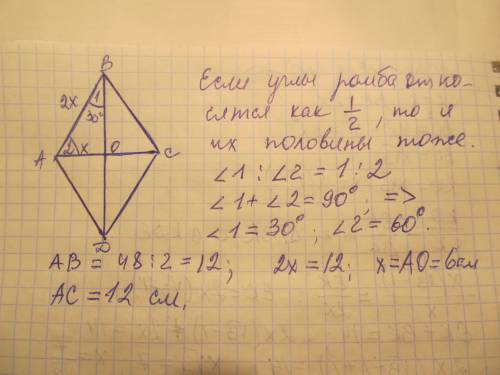 B
2x
1
30°
A
2
x
O
C
D
Если углы ромба относ-
сятся как 1/2, то и
их половины тоже.
∠1 : ∠2 = 1 : 2
∠1 + ∠2 = 90°, =>
∠1 = 30°; ∠2 = 60°.
AB = 48 : 2 = 12; 2x = 12; x = AO = 6 см
AC = 12 см.